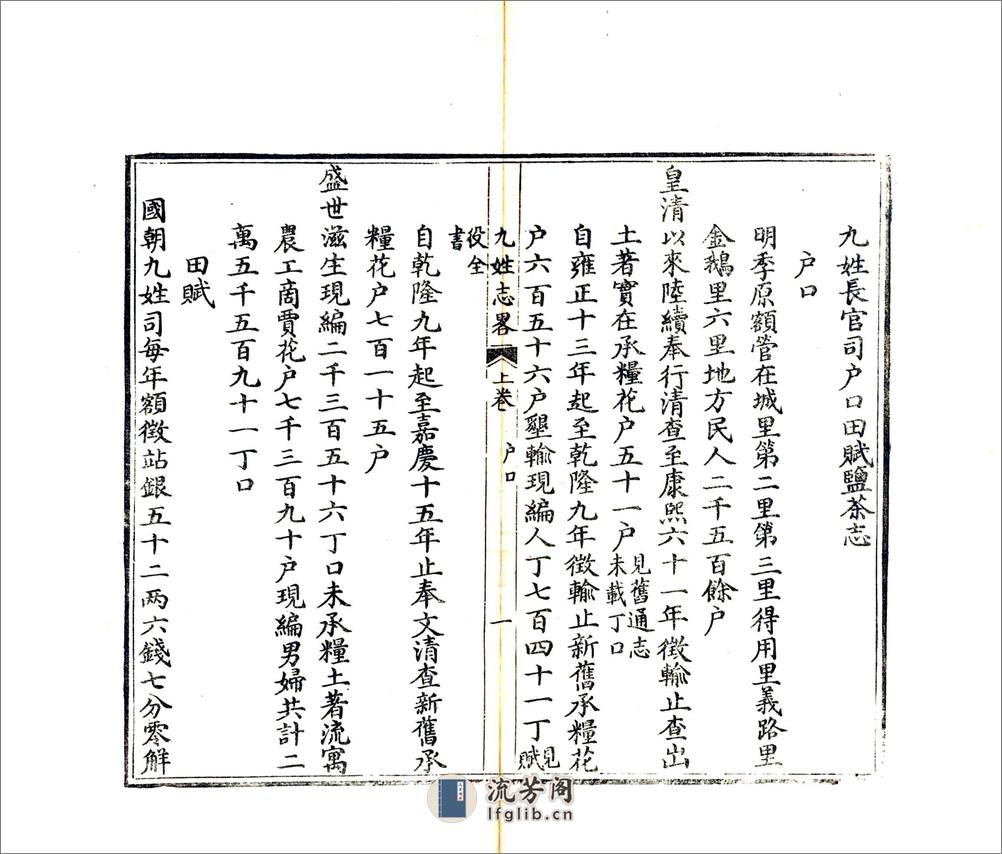 九姓長官司户口田賦鹽茶志
户口
明季原額管在城里第二里第三里得用里義路里
金鵝里六里地方民人二千五百餘户
皇清以來陸續奉行清查至康熙六十一年徵輸止查出
土著實在承糧花户五十一户見舊通志未載丁口
自雍正十三年起至乾隆九年徵輸止新舊承糧花
户六百五十六户墾輸現編人丁七百四十一丁見賦
九姓志畧 上卷 户口 一
役全書
自乾隆九年起至嘉慶十五年止奉文清查新舊承
糧花户七百一十五户
盛世滋生現編二千三百五十六丁口未承糧土著流寓
農工商賈花户七千三百九十户現編男婦共計二
萬五千五百九十一丁口
田賦
國朝九姓司每年額徵站銀五十二兩六錢七分零解
流芳阁
lfglib.cn